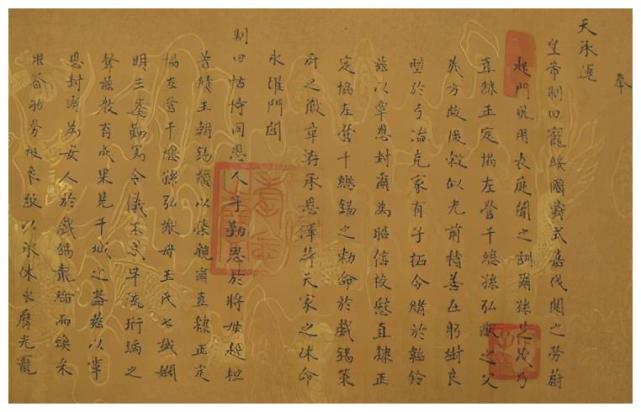 奉
天承運
皇帝制曰寵綏國爵式嘉伐閱之勞蔚
起門風用表庭闈之訓爾孫芝茂乃
直隸正定協左營千總孫弘猷之父
義方啟後穀似光前積善在躬樹良
型於弓冶克家有子拓令緒於韜鈐
茲以覃恩封爾為昭信校尉直隸正
定協左營千總錫之敕命於戲錫策
府之徽章洊承恩澤荷天家之休命
永耀門閭
制曰怙恃同恩人子勤思於將母赳桓
著績王朝錫類以榮親爾直隸正定
協左營千總孫弘猷母王氏七誡嫻
明三遷勤篤令儀不忒早流珩瑀之
聲慈教有成果見干城之器茲以覃
恩封爾為安人於戲錫龍綸而煥采
用答劬勞被象服以承庥永膺光寵